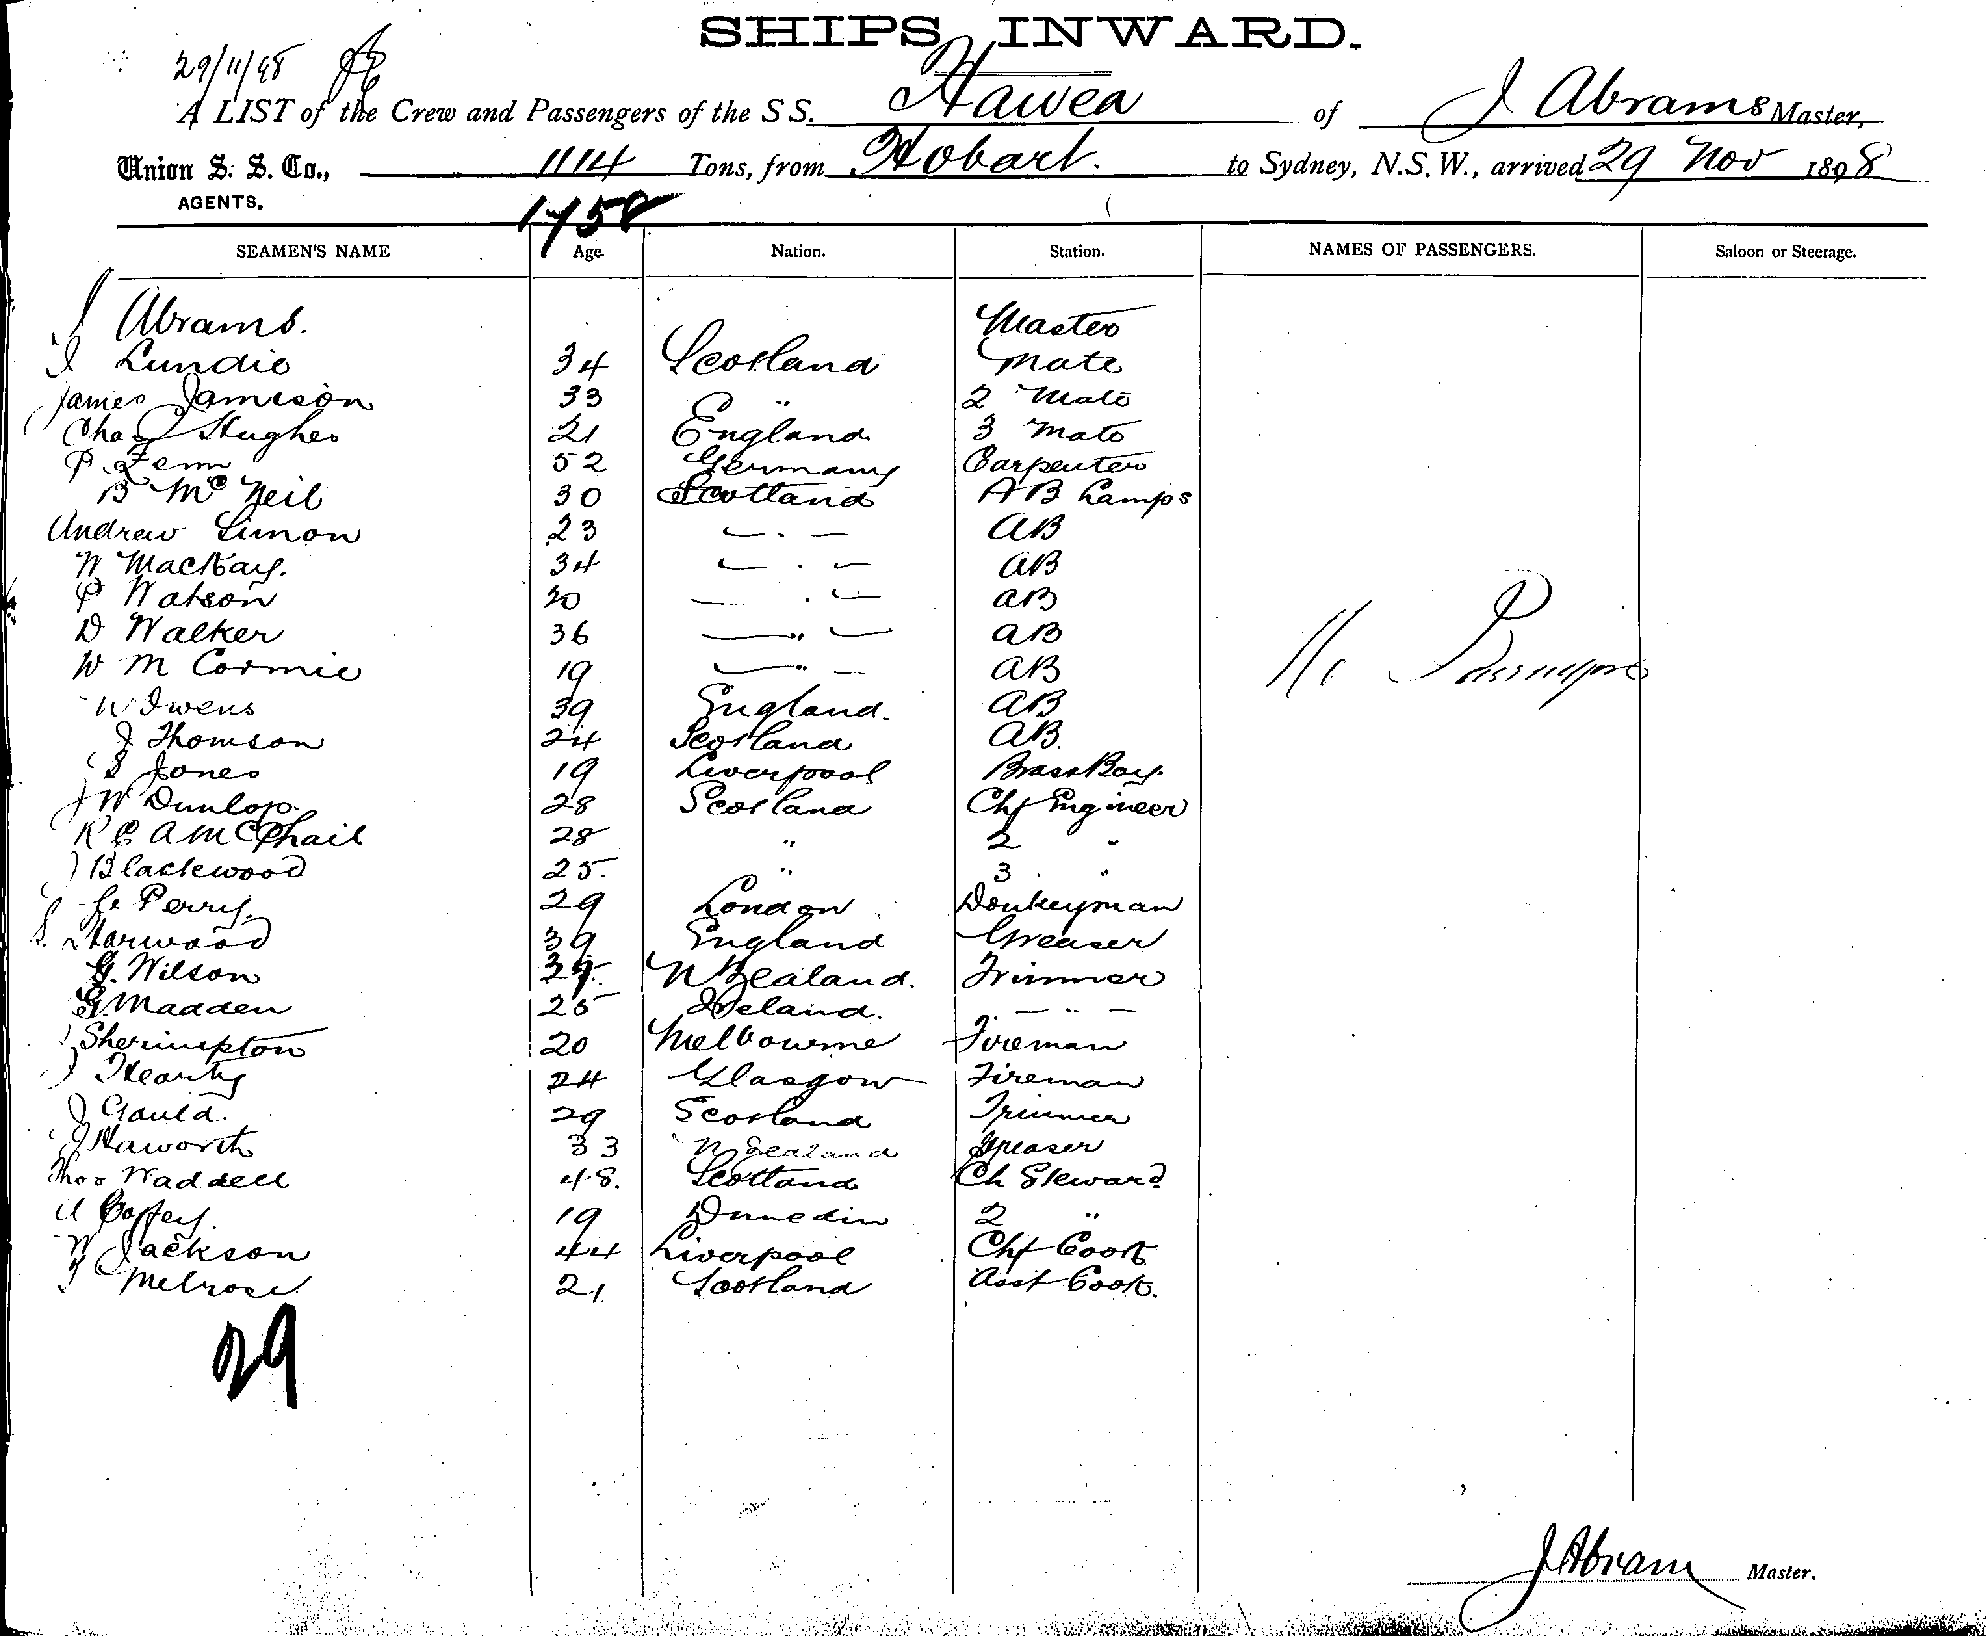 SHIPS INWARD.
29/11/98
A LIST of the Crew and Passengers of the S S. Hawea of J Abrams Master,
Union S. S. Co., 1114 Tons, from Hobart. to Sydney, N.S.W., arrived 29 Nov 1898
AGENTS.
1758
SEAMEN'S NAME Age. Nation. Station. NAMES OF PASSENGERS. Saloon or Steerage.
J Abrams. Master
J Lundie 34 Scotland Mate
James Jameson 33 " 2 Mate
Chas Hughes 21 England 3 Mate
P. Fenn 52 Germany Carpenter
B McNeil 30 Scotland AB Lamps
Andrew Simon 23 — . — AB
W MacKay. 34 — . — AB
P Watson 20 — . — AB
D Walker 36 — " — AB
W M Cormic 19 — " — AB
No Passengers
W Owens 39 England. AB
J Thomson 24 Scotland AB.
S Jones 19 Liverpool Brass Boy.
J W Dunlop. 28 Scotland Chf Engineer
R C A McPhail 28 " 2 "
J Blackwood 25. " 3 "
G. Perry. 29 London Donkeyman
S. Harwood 39 England Greaser
G. Wilson 29. N Zealand. Trimmer
G. Madden 25 Ireland. — " —
J Sherimpton 20 Melbourne Fireman
J Hearty 24 Glasgow Fireman
J Gauld. 29 Scotland Trimmer
J Haworth 33 N Zealand Greaser
Thos Waddell 48. Scotland Ch Steward
A Coffey. 19 Dunedin 2 "
W Jackson 44 Liverpool Chf Cook
T Melrose 21 Scotland Asst Cook.
29
J Abram Master.